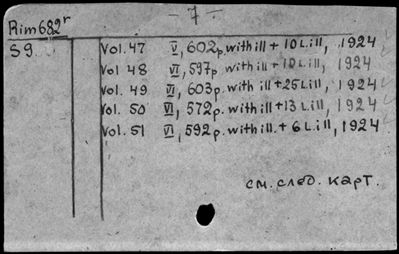 — 7 —
Rim 682ʳ
S9
Vol. 47 V, 602p. with ill + 10 L. ill, 1924
Vol 48 VI, 597p with ill + 10 L. ill, 1924
Vol. 49 VI, 603p. with ill + 25 L ill, 1924
Vol. 50 VI, 572p. with ill + 13 L. ill, 1924
Vol. 51 VI, 592p. with ill. + 6 L. ill, 1924
см. след. карт.